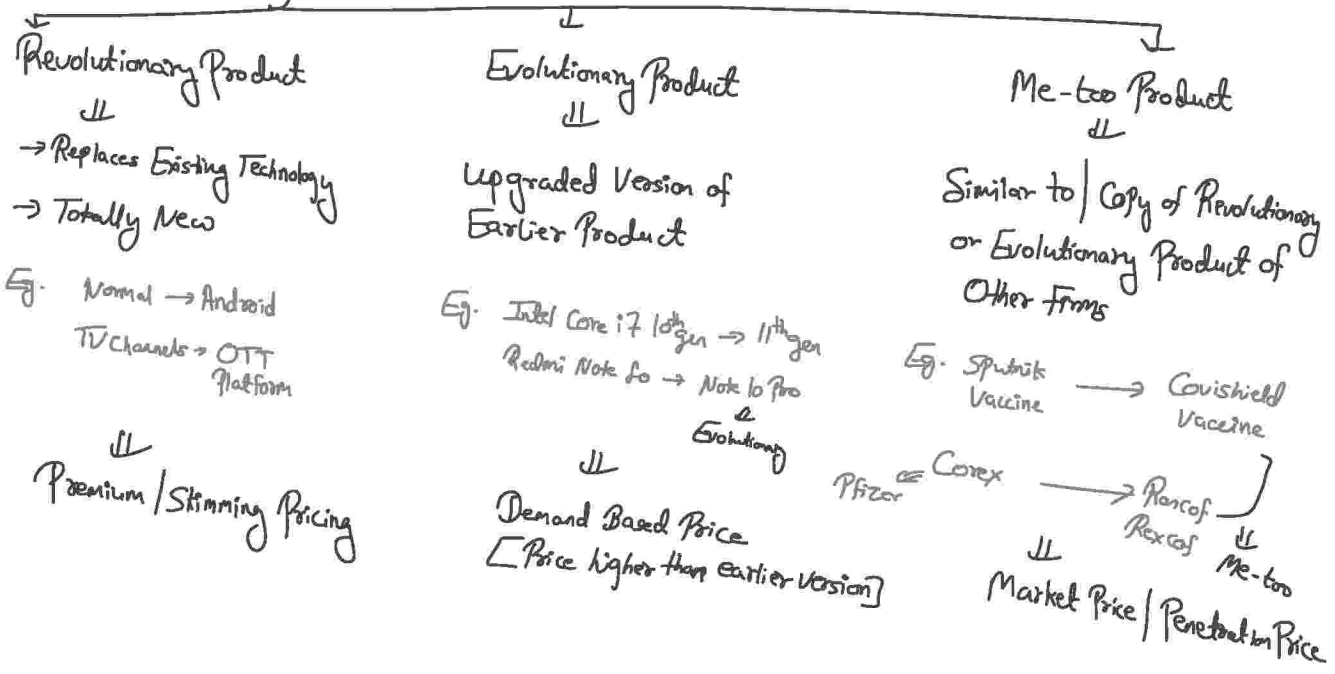 Revolutionary Product
→ Replaces Existing Technology
→ Totally New
Eg. Normal → Android
TV Channels → OTT
Platform
Premium / Skimming Pricing
Evolutionary Product
Upgraded Version of
Earlier Product
Eg. Intel Core i7 10th gen → 11th gen
Redmi Note → Note 10 Pro
Evolutionary
Demand Based Price
[Price higher than earlier version]
Me-too Product
Similar to / Copy of Revolutionary
or Evolutionary Product of
Other Firms
Eg. Sputnik → Covishield
Vaccine Vaccine
Pfizer ⇐ Corex →
Rexcof
Me-too
Market Price / Penetration Price